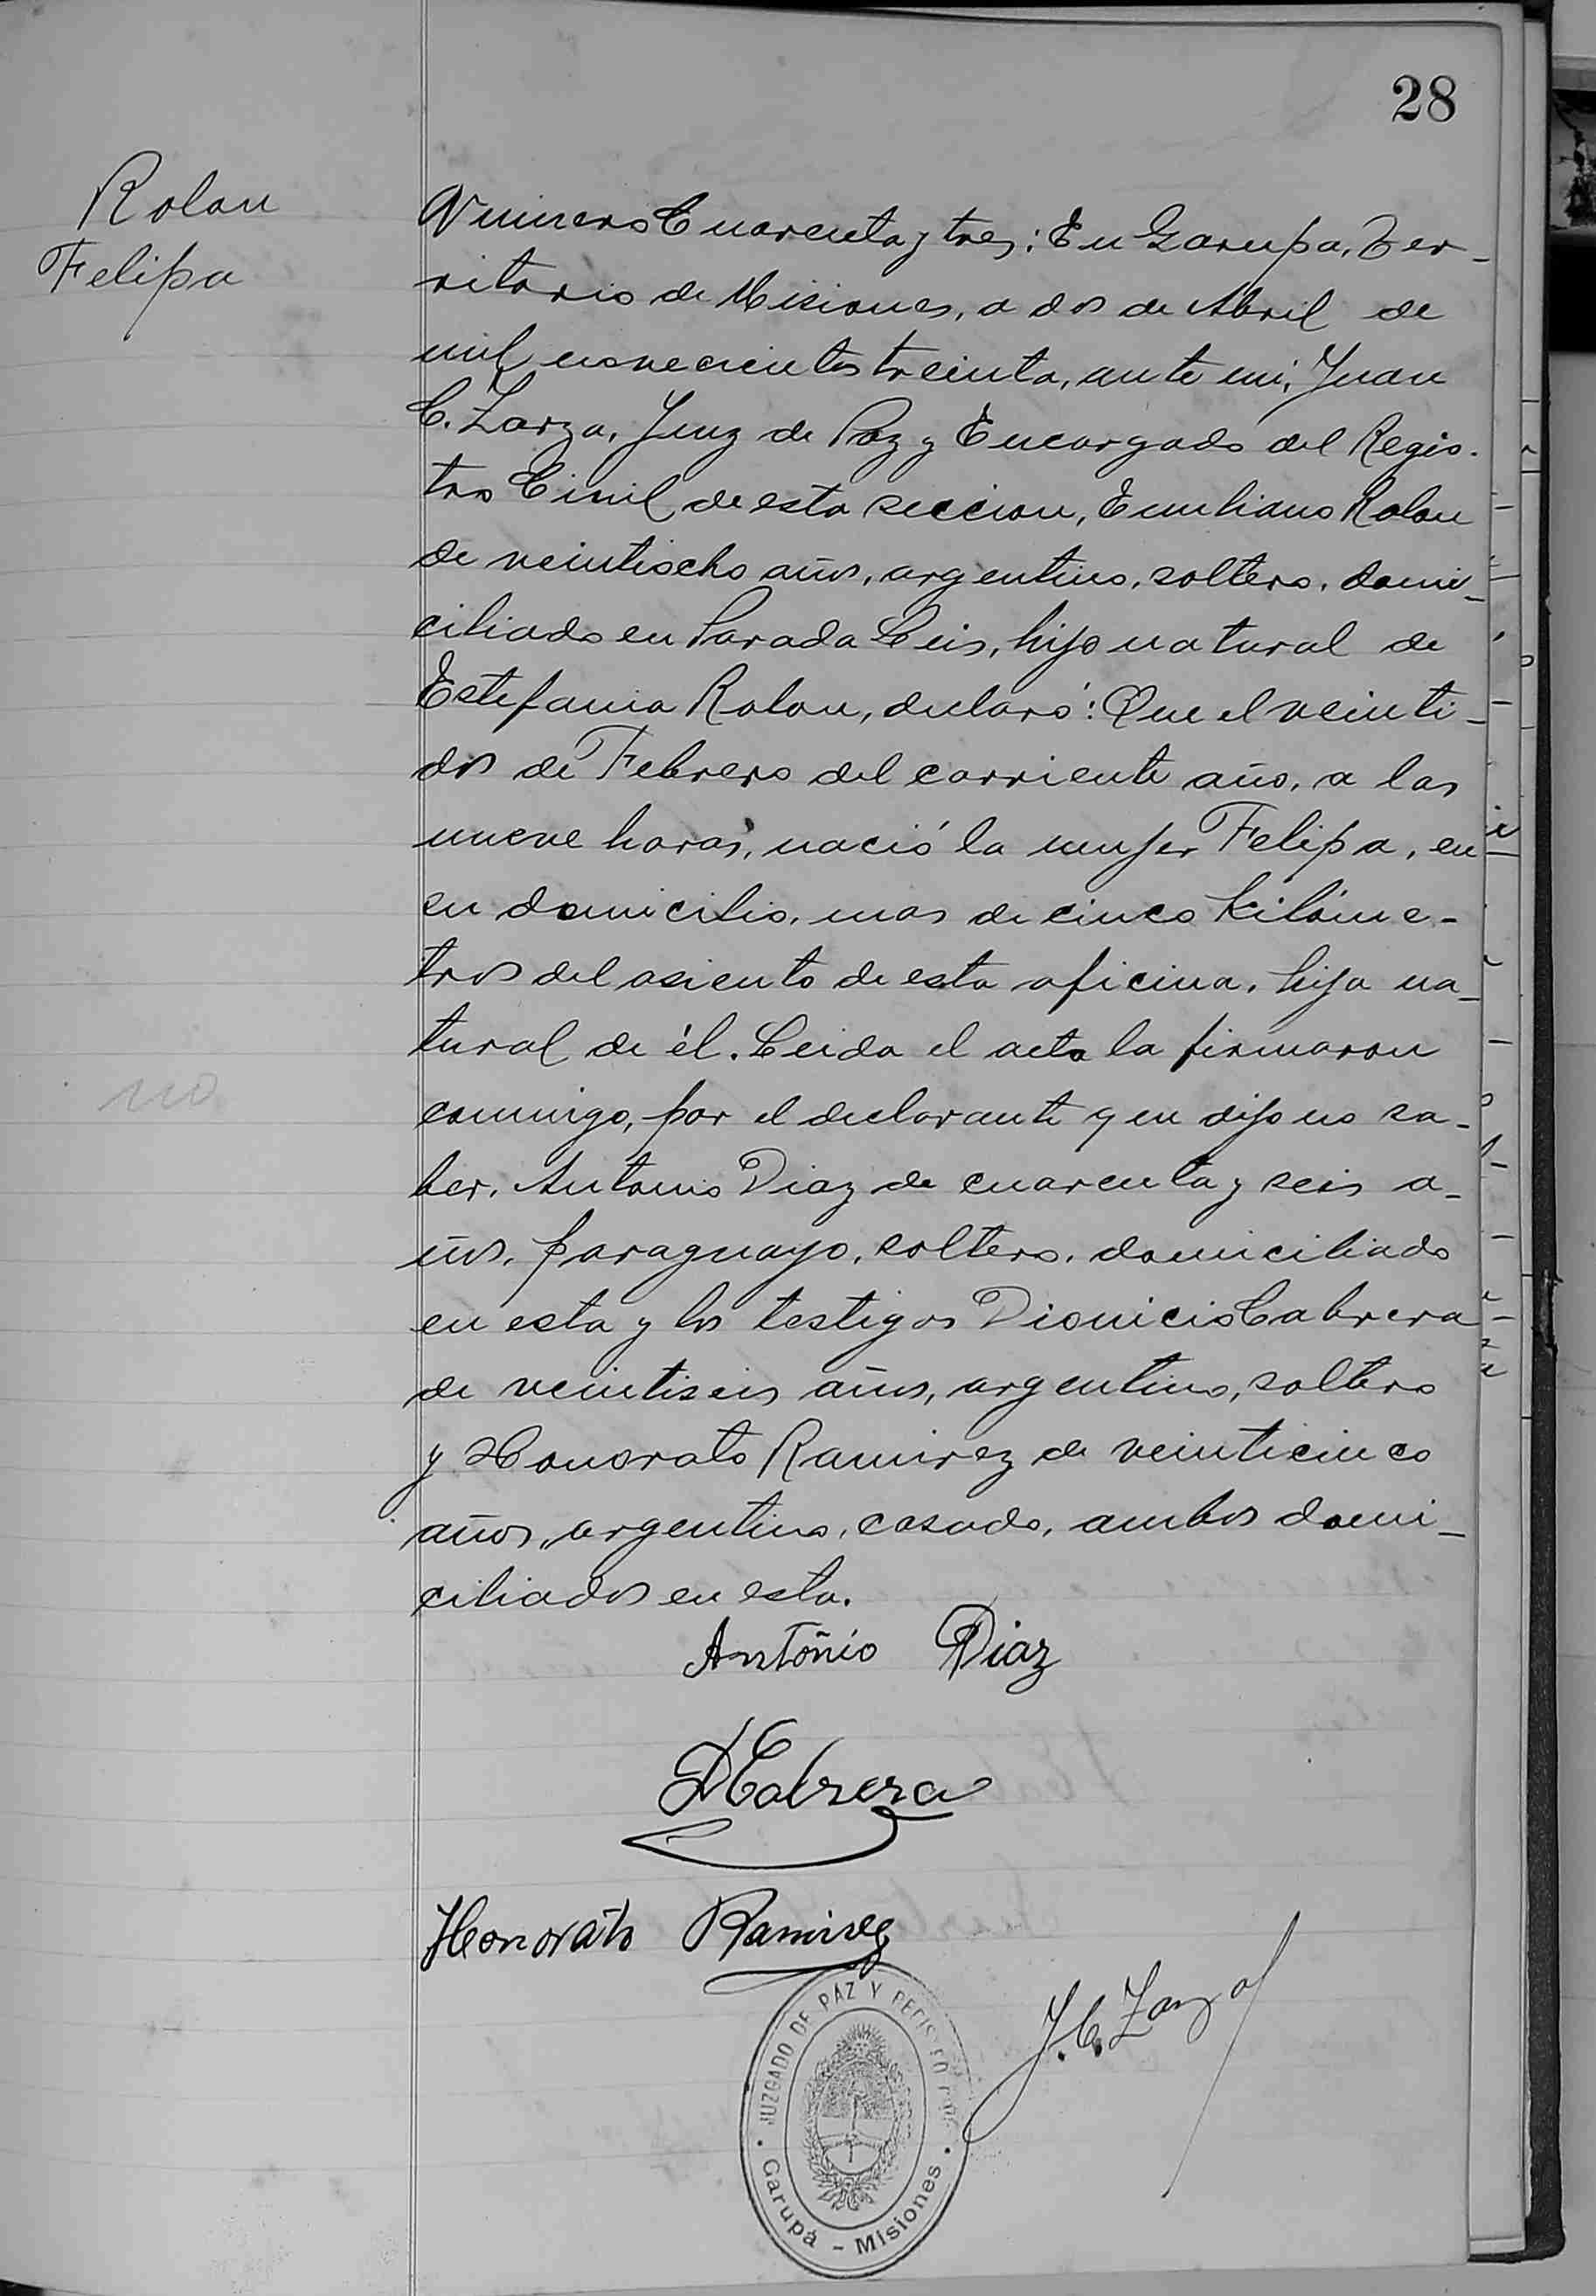 28
Rolon
Felipa
Numero Cuarenta y tres: En Garupa, Ter-
ritorio de Misiones, a dos de Abril de
mil novecientos treinta, ante mi, Juan
C. Zarza, Juez de Paz y Encargado del Regis-
tro Civil de esta seccion, Emiliano Rolon
de veintiocho años, argentino, soltero, domi-
ciliado en Parada Leis, hijo natural de
Estefania Rolon, declaró: Que el veinti-
dos de Febrero del corriente año, a las
nueve horas, nació la mujer Felipa, en
su domicilio, mas de cinco Kilóme-
tros del asiento de esta oficina, hija na-
tural de él. Leida el acta la firmaron
conmigo, por el declarante q en dijo no sa-
ber, Antonio Diaz de cuarenta y seis a-
ños, paraguayo, soltero, domiciliado
en esta y los testigos Dionicio Cabrera
de veintiseis años, argentino, soltero
y Honorato Ramirez de veinticinco
años, argentino, casado, ambos domi-
ciliados en esta.
no
Antonio Diaz
DCabrera
Honorato Ramirez
J. C. Zarza
JUZGADO DE PAZ Y REGISTRO
Garupá - Misiones